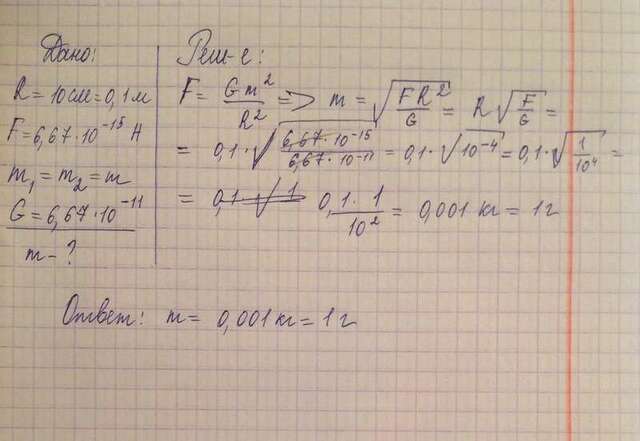 Дано:
R = 10см = 0,1 м
F = 6,67·10⁻¹⁵ Н
m₁ = m₂ = m
G = 6,67·10⁻¹¹
m - ?
Реш-е:
F = Gm²/R² => m = √(FR²/G) = R√(F/G) =
= 0,1·√(6,67·10⁻¹⁵/6,67·10⁻¹¹) = 0,1·√(10⁻⁴) = 0,1·√(1/10⁴) =
= 0,1·1/10² = 0,001 кг = 1г
Ответ: m = 0,001 кг = 1 г